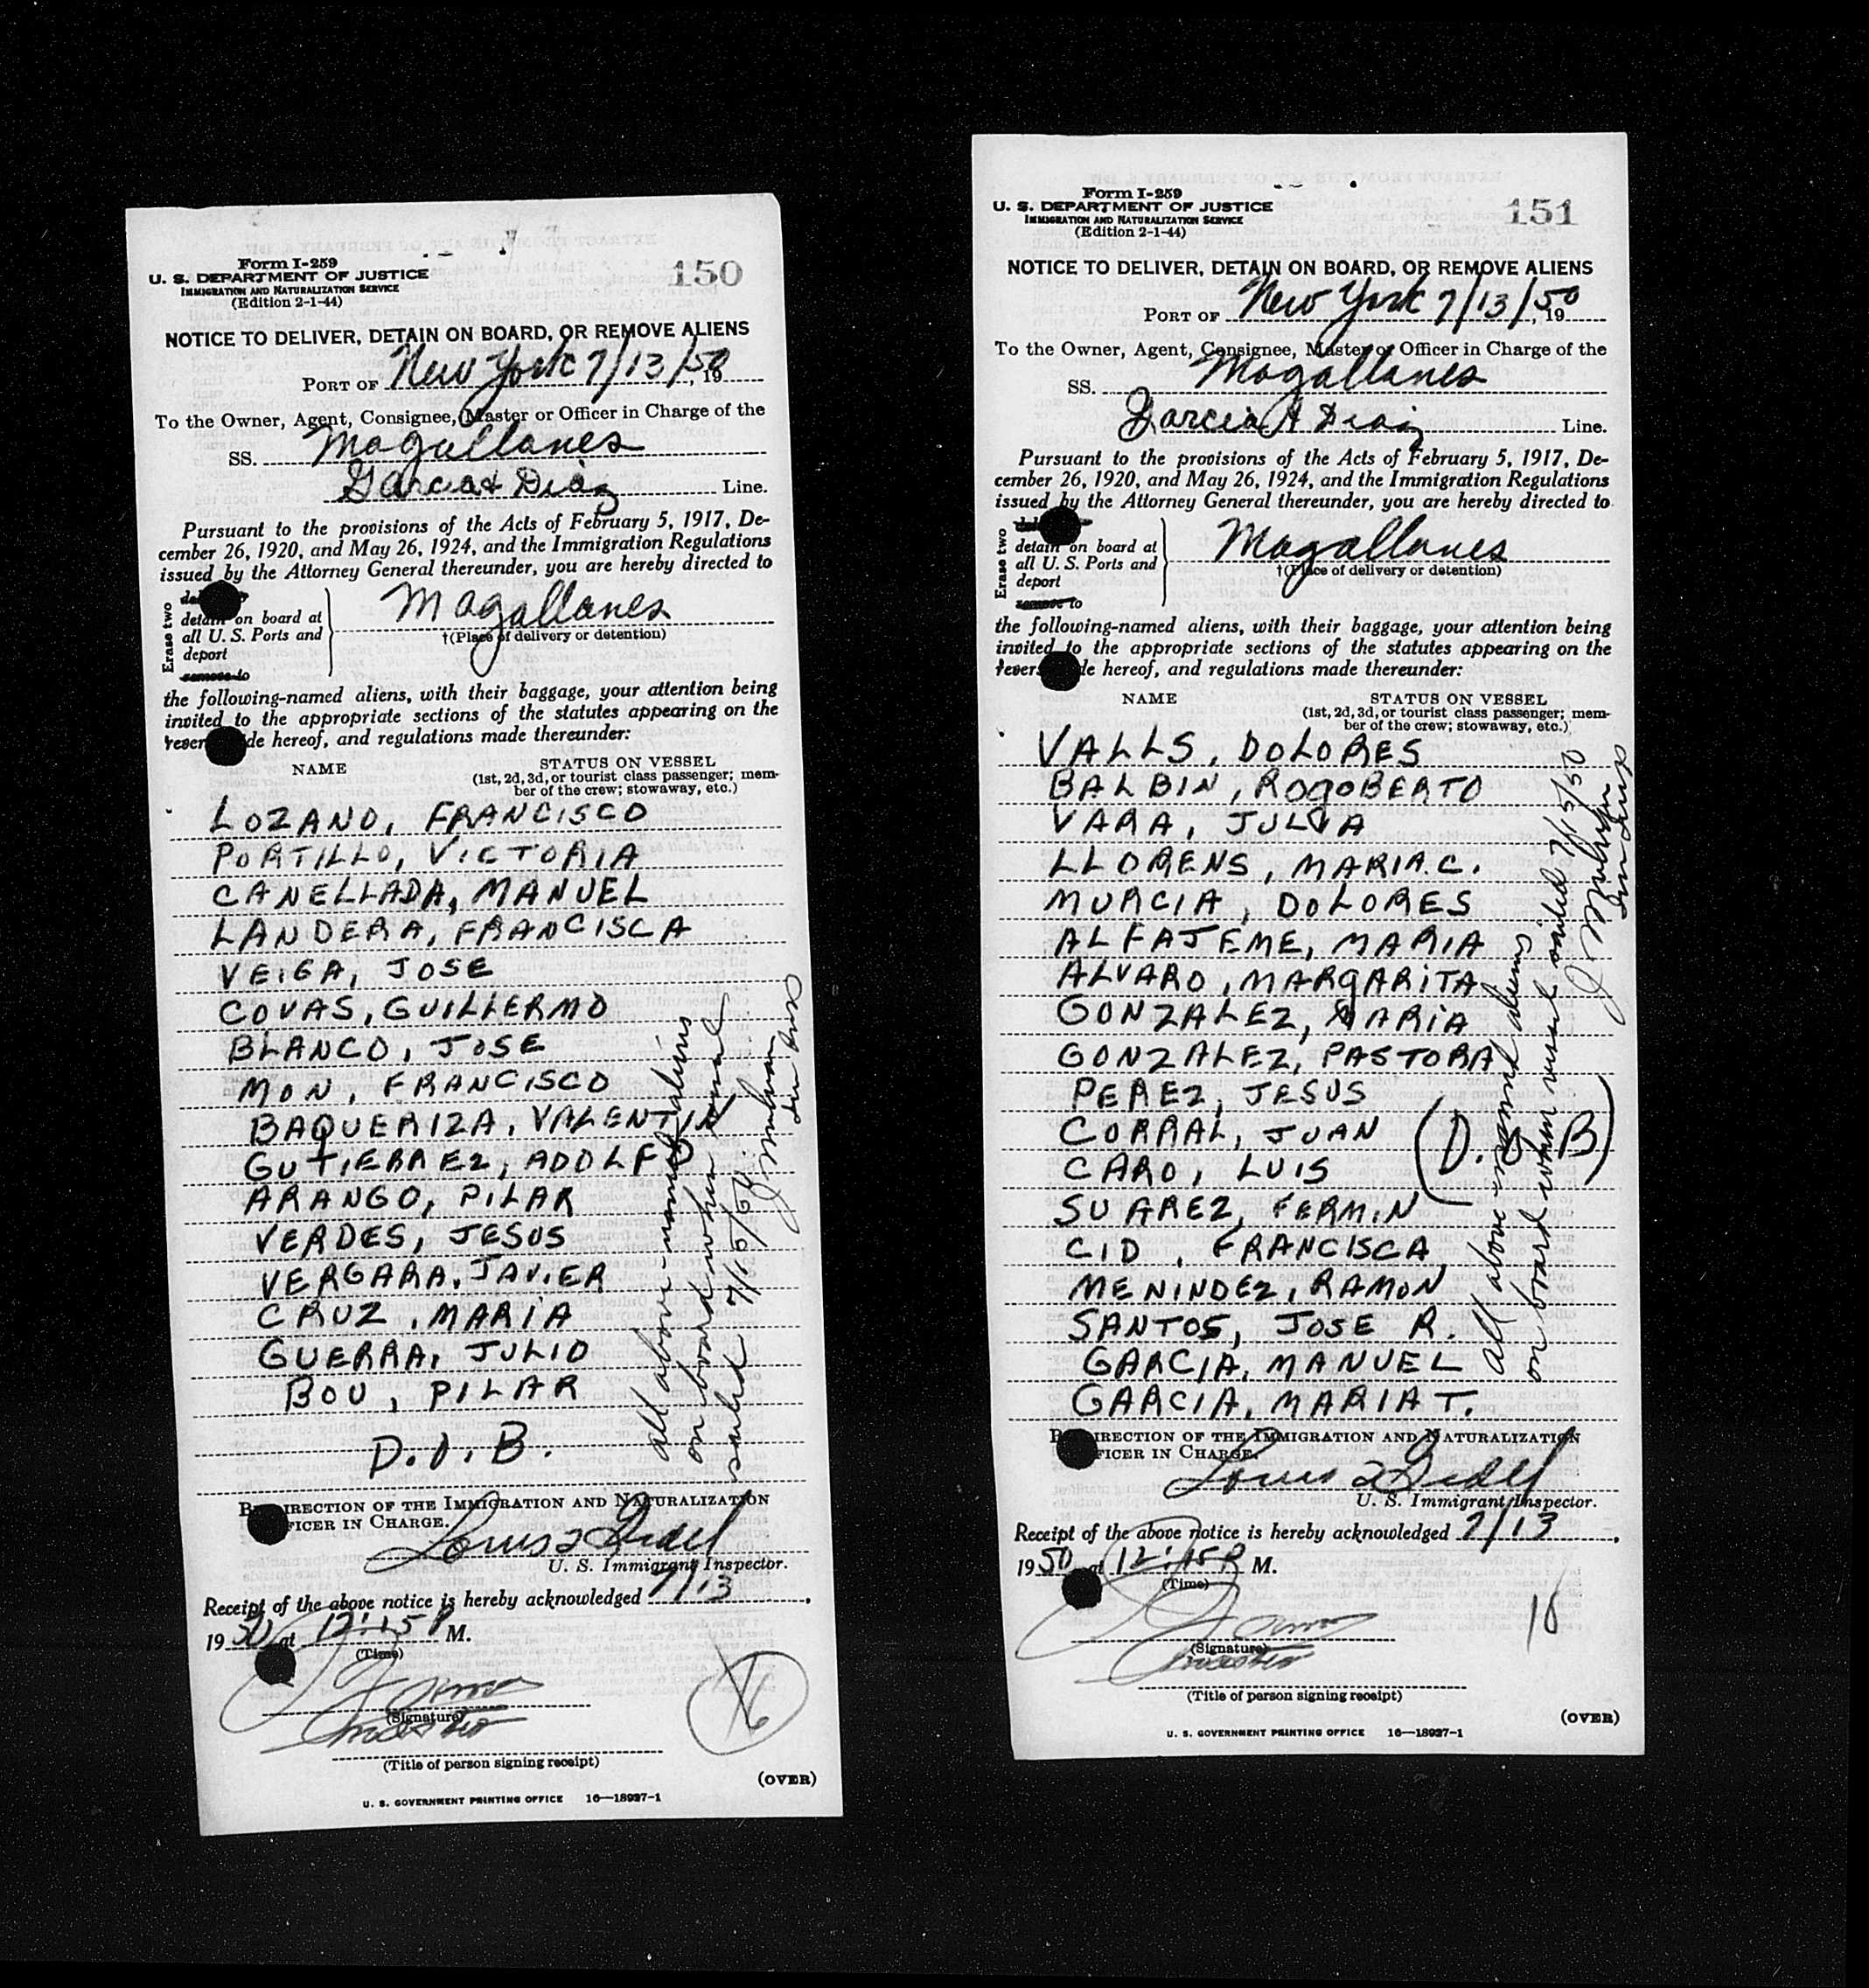 Form I-259
U. S. DEPARTMENT OF JUSTICE
IMMIGRATION AND NATURALIZATION SERVICE
(Edition 2-1-44)
150
NOTICE TO DELIVER, DETAIN ON BOARD, OR REMOVE ALIENS
PORT OF New York 7/13/50, 19
To the Owner, Agent, Consignee, Master or Officer in Charge of the
SS. Magallanes
Garcia & Diaz Line.
Pursuant to the provisions of the Acts of February 5, 1917, De-
cember 26, 1920, and May 26, 1924, and the Immigration Regulations
issued by the Attorney General thereunder, you are hereby directed to
Erase two
detain on board at
all U. S. Ports and
deport
remove to
Magallanes
†(Place of delivery or detention)
the following-named aliens, with their baggage, your attention being
invited to the appropriate sections of the statutes appearing on the
hereof, and regulations made thereunder:
NAME STATUS ON VESSEL
(1st, 2d, 3d, or tourist class passenger; mem-
ber of the crew; stowaway, etc.)
LOZANO, FRANCISCO
PORTILLO, VICTORIA
CANELLADA, MANUEL
LANDERA, FRANCISCA
VEIGA, JOSE
COVAS, GUILLERMO
BLANCO, JOSE
MON, FRANCISCO
BAQUERIZA, VALENTIN
GUTIERREZ, ADOLFO
ARANGO, PILAR
VERDES, JESUS
VERGARA, JAVIER
CRUZ, MARIA
GUERRA, JULIO
BOU, PILAR
D.O.B.
all above-named aliens
on board when vessel
sailed 7/15/50
BY DIRECTION OF THE IMMIGRATION AND NATURALIZATION
OFFICER IN CHARGE.
Louis
U. S. Immigrant Inspector.
Receipt of the above notice is hereby acknowledged 7/13,
1950 at 12:15 P M.
(Time)
(Signature)
master
(Title of person signing receipt)
16
(OVER)
U. S. GOVERNMENT PRINTING OFFICE 16—18927-1
Form I-259
U. S. DEPARTMENT OF JUSTICE
IMMIGRATION AND NATURALIZATION SERVICE
(Edition 2-1-44)
151
NOTICE TO DELIVER, DETAIN ON BOARD, OR REMOVE ALIENS
PORT OF New York 7/13/50, 19
To the Owner, Agent, Consignee, Master or Officer in Charge of the
SS. Magallanes
Garcia & Diaz Line.
Pursuant to the provisions of the Acts of February 5, 1917, De-
cember 26, 1920, and May 26, 1924, and the Immigration Regulations
issued by the Attorney General thereunder, you are hereby directed to
Erase two
detain on board at
all U. S. Ports and
deport
remove to
Magallanes
†(Place of delivery or detention)
the following-named aliens, with their baggage, your attention being
invited to the appropriate sections of the statutes appearing on the
hereof, and regulations made thereunder:
NAME STATUS ON VESSEL
(1st, 2d, 3d, or tourist class passenger; mem-
ber of the crew; stowaway, etc.)
VALLS, DOLORES
BALBIN, ROGOBERTO
VARA, JULIA
LLORENS, MARIA C.
MURCIA, DOLORES
ALFAJEME, MARIA
ALVARO, MARGARITA
GONZALEZ, MARIA
GONZALEZ, PASTORA
PEREZ, JESUS
CORRAL, JUAN
CARO, LUIS
SUAREZ, FERMIN
CID, FRANCISCA
MENINDEZ, RAMON
SANTOS, JOSE R.
GARCIA, MANUEL
GARCIA, MARIA T.
(D.O.B)
all above named aliens
on board when vessel sailed 7/15/50
BY DIRECTION OF THE IMMIGRATION AND NATURALIZATION
OFFICER IN CHARGE.
Louis
U. S. Immigrant Inspector.
Receipt of the above notice is hereby acknowledged 7/13,
1950 at 12:15 P M.
(Time)
(Signature)
master
(Title of person signing receipt)
(OVER)
U. S. GOVERNMENT PRINTING OFFICE 16—18927-1